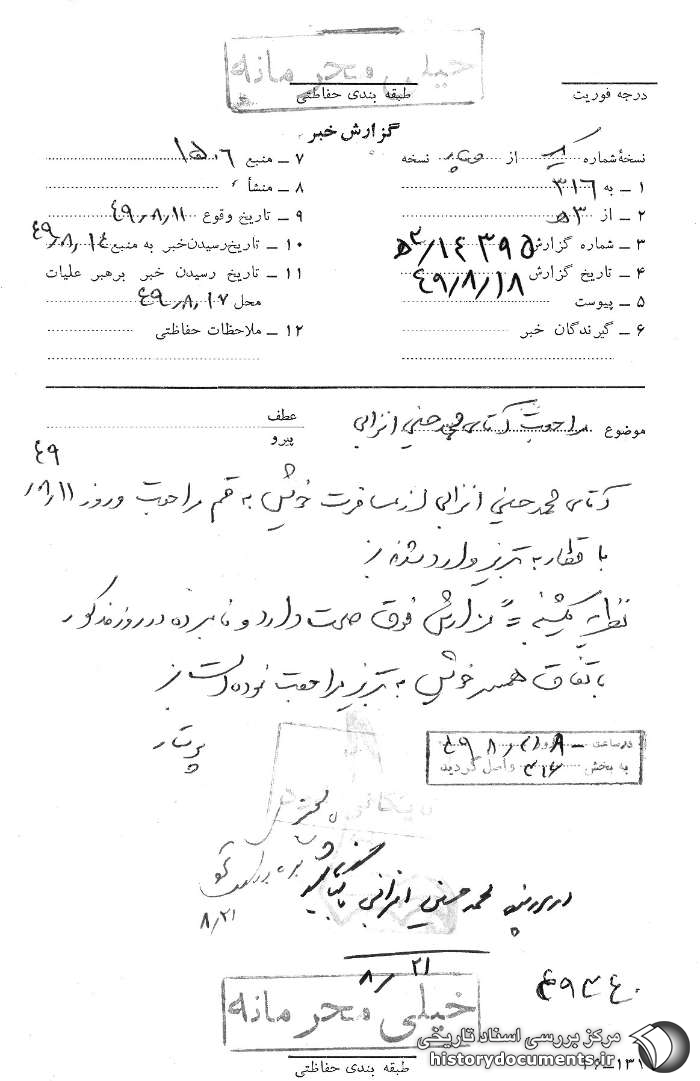 خیلی محرمانه
درجه فوریت
طبقه بندی حفاظتی
گزارش خبر
نسخهٔ شماره از نسخه
۱ ـ به ۳۱۶
۲ ـ از ۵۳
۳ ـ شماره گزارش ۵۳/۱۴۳۹۵
۴ ـ تاریخ گزارش ۴۹/۸/۱۸
۵ ـ پیوست
۶ ـ گیرندگان خبر
۷ ـ منبع ۱۵۰۶
۸ ـ منشأ
۹ ـ تاریخ وقوع ۴۹/۸/۱۱
۱۰ ـ تاریخ رسیدن خبر به منبع ۴۹/۸/۱۴
۱۱ ـ تاریخ رسیدن خبر برهبر عملیات
محل ۴۹/۸/۱۷
۱۲ ـ ملاحظات حفاظتی
موضوع مراجعت محمد حسنی انزابی
عطف
پیرو
محمد حسنی انزابی از مسافرت خویش به قم مراجعت و روز ۴۹/۸/۱۱
با قطار به تبریز وارد شده
نظریه یکشنبه = گزارش فوق صحت دارد و نامبرده در روز مذکور
باتفاق همسر خویش به تبریز مراجعت نموده است
در ساعت روز
به بخش ۳۱۶ واصل گردید
بایگانی شود
در پرونده محمد حسنی انزابی
۸/۲۱
۸/۲۱
خیلی محرمانه
طبقه بندی حفاظتی
مرکز بررسی اسناد تاریخی
historydocuments.ir